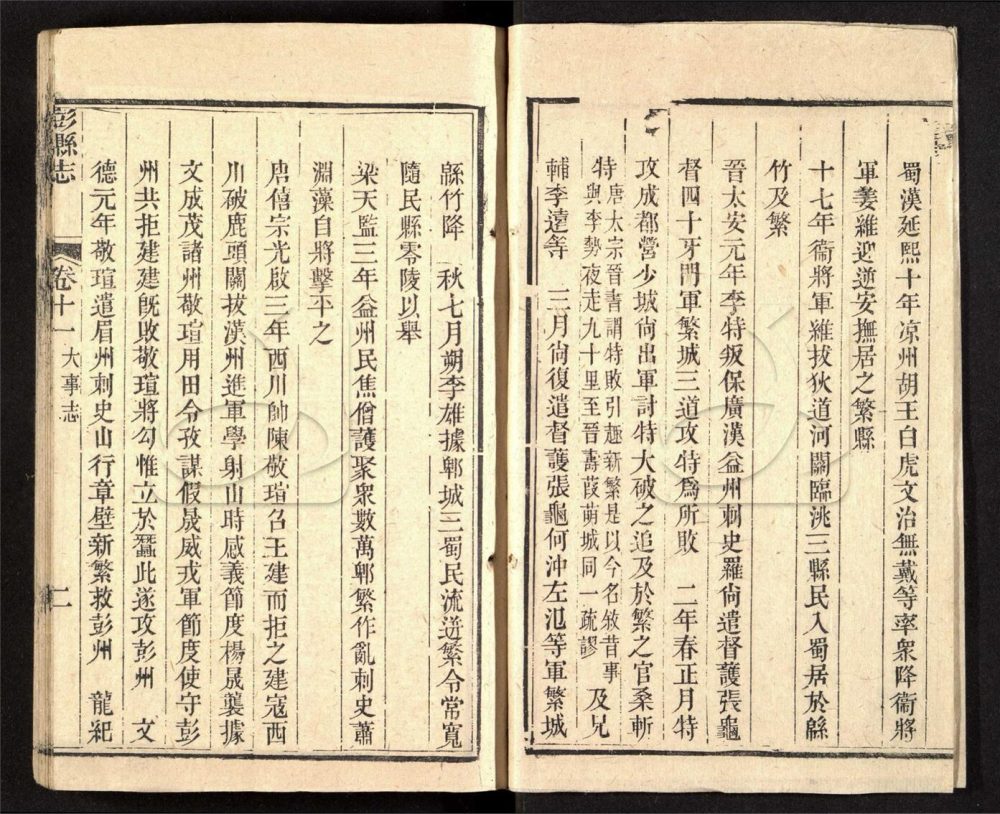 蜀漢延熙十年凉州胡王白虎文治無戴等率衆降衞將
軍姜維迎逆安撫居之繁縣
十七年衞將軍維拔狄道河關臨洮三縣民入蜀居於緜
竹及繁
晉太安元年李特叛保廣漢益州刺史羅尙遣督護張龜
督四十牙門軍繁城三道攻特爲所敗　二年春正月特
攻成都營少城尙出軍討特大破之追及於繁之官桑斬
特唐太宗晉書謂特敗引趣新繁是以今名敘昔事
與李勢夜走九十里至晉壽葭萌城同一疏謬　及兄
輔李遠等　三月尙復遣督護張龜何沖左氾等軍繁城
緜竹降　秋七月朔李雄據郫城三蜀民流迸繁令常寬
隨民縣零陵以舉
梁天監三年益州民焦僧護聚衆數萬郫繁作亂刺史蕭
淵藻自將擊平之
唐僖宗光啟三年西川帥陳敬瑄召王建而拒之建寇西
川破鹿頭關拔漢州進軍學射山時感義節度楊晟襲據
文成茂諸州敬瑄用田令孜謀假晟威戎軍節度使守彭
州共拒建建旣敗敬瑄將勾惟立於蠶此遂攻彭州　文
德元年敬瑄遣眉州刺史山行章壁新繁救彭州　龍紀
彭縣志　卷十一　大事志　二